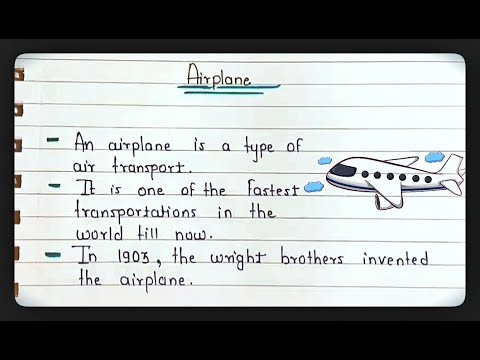 Airplane
- An airplane is a type of
air transport.
- It is one of the fastest
transportations in the
world till now.
- In 1903, the wright brothers invented
the airplane.